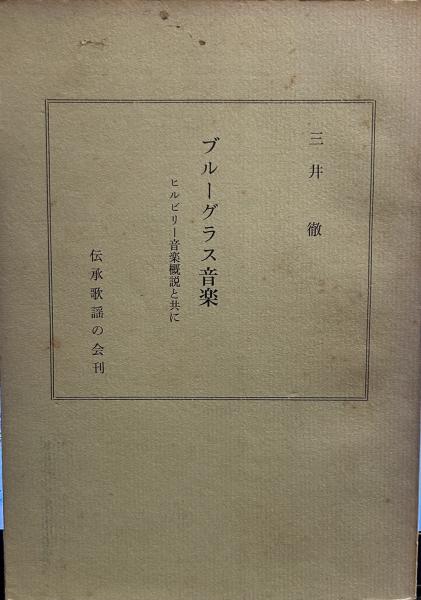 三井徹
ブルーグラス音楽
ヒルビリー音楽概説と共に
伝承歌謡の会刊